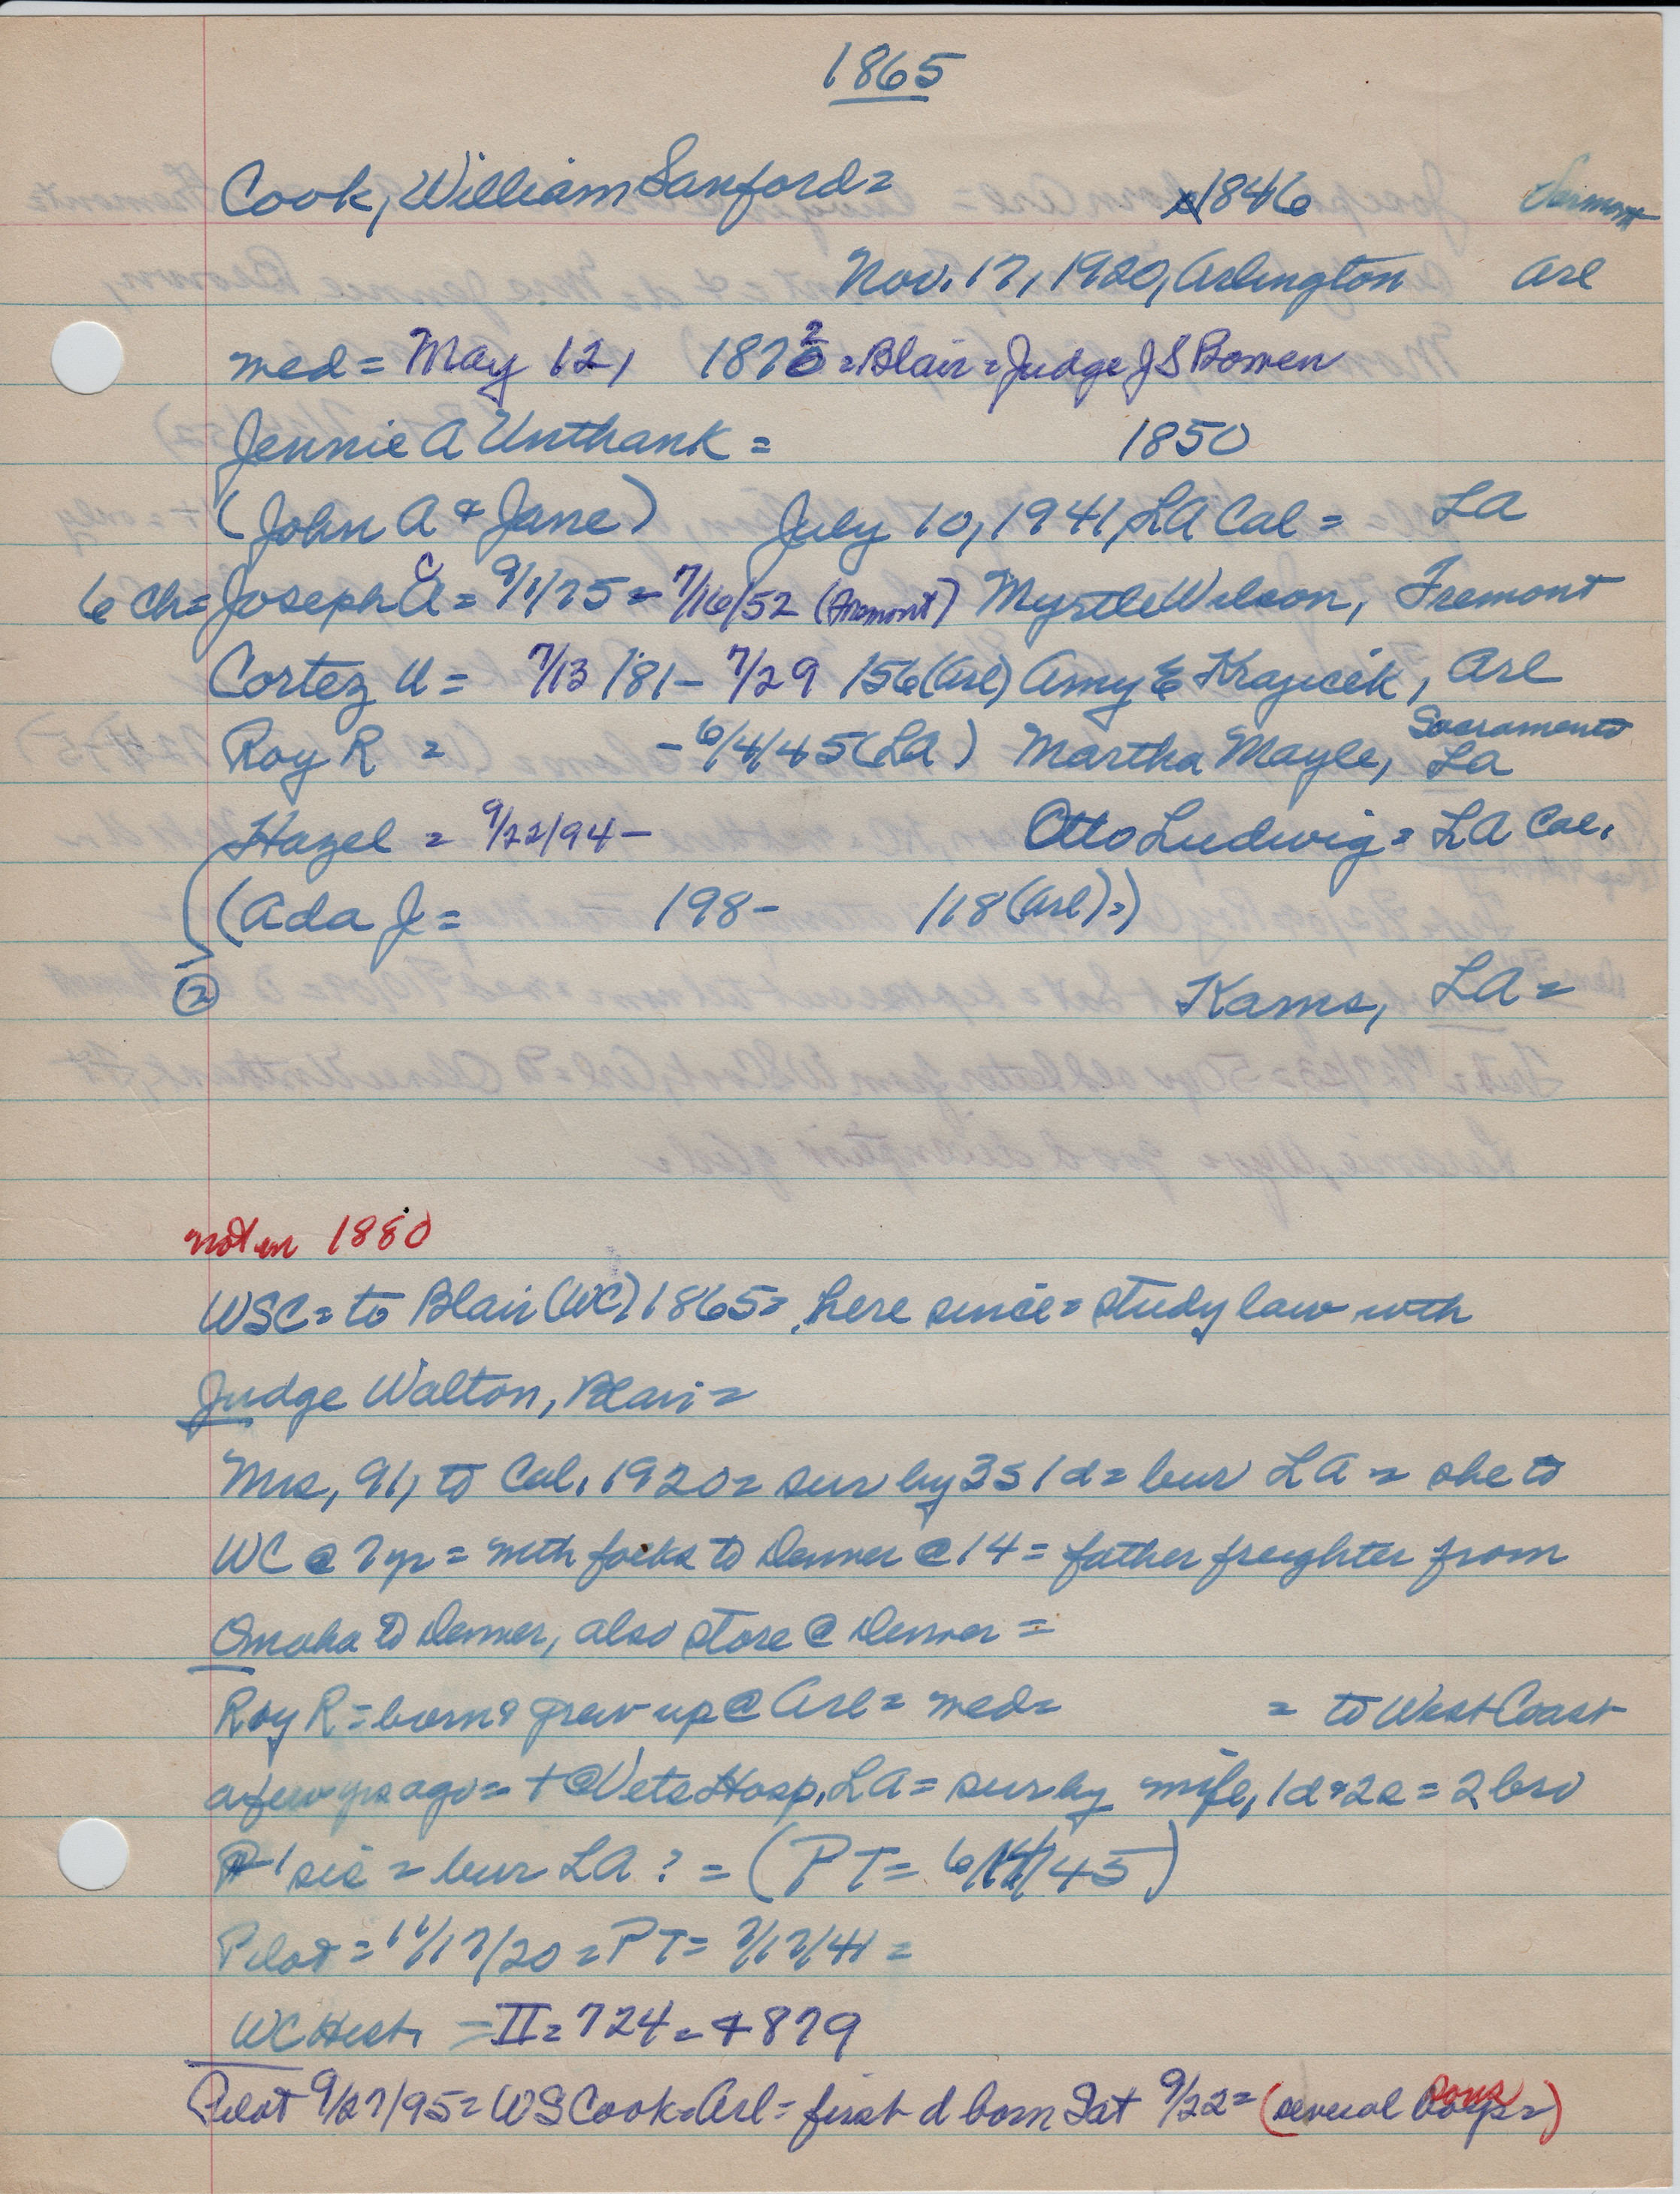 1865
Cook, William Sanford = 1846 Vermont
Nov. 17, 1920, Arlington Arl
med = May 12, 1872 = Blair = Judge J S Bowen
Jennie A Unthank = 1850
(John A & Jane) July 10, 1941, LA Cal = LA
6 ch = Joseph C = 9/1/75 = 7/16/52 (Fremont) Myrtle Wilson, Fremont
Cortez U = 7/13/81 - 7/29/56 (Arl) Amy E Krajicek, Arl
Sacramento
Roy R = - 6/4/45 (LA) Martha Mayle, LA
Hazel = 9/22/94 - Otto Ludwig = LA Cal.
(Ada J = 198 - 118 (Arl) =)
2 Kams, LA =
not in 1880
WSC = to Blair (WC) 1865 = here since = study law with
Judge Walton, Blair =
Mrs, 91, to Cal. 1920 = sur by 3s 1d = bur LA = she to
WC @ 7 yr = with folks to Denver @ 14 = father freighter from
Omaha to Denver, also store @ Denver =
Roy R = born & grew up @ Arl = med = = to West Coast
a few yrs ago = + @ Vets Hosp, LA = sur by wife, 1d & 2s = 2 bro
1 sis = bur LA ? = (PT = 6/14/45)
Pilot = 11/17/20 = PT = 7/17/41 =
WC Hist. = II = 724 = + 879
Pilot 9/27/95 = WS Cook = Arl = first d born Sat 9/22 = (several sons =)